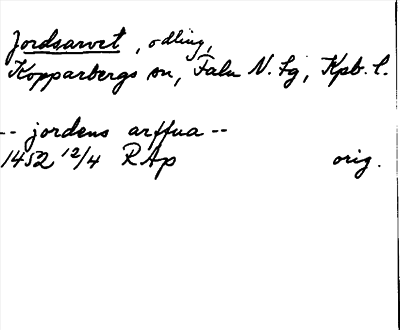 Jordsarvet, odling,
Kopparbergs sn, Falu N. tg, Kpb. l.
-- jordens arffua --
1452 12/4 RAp orig.